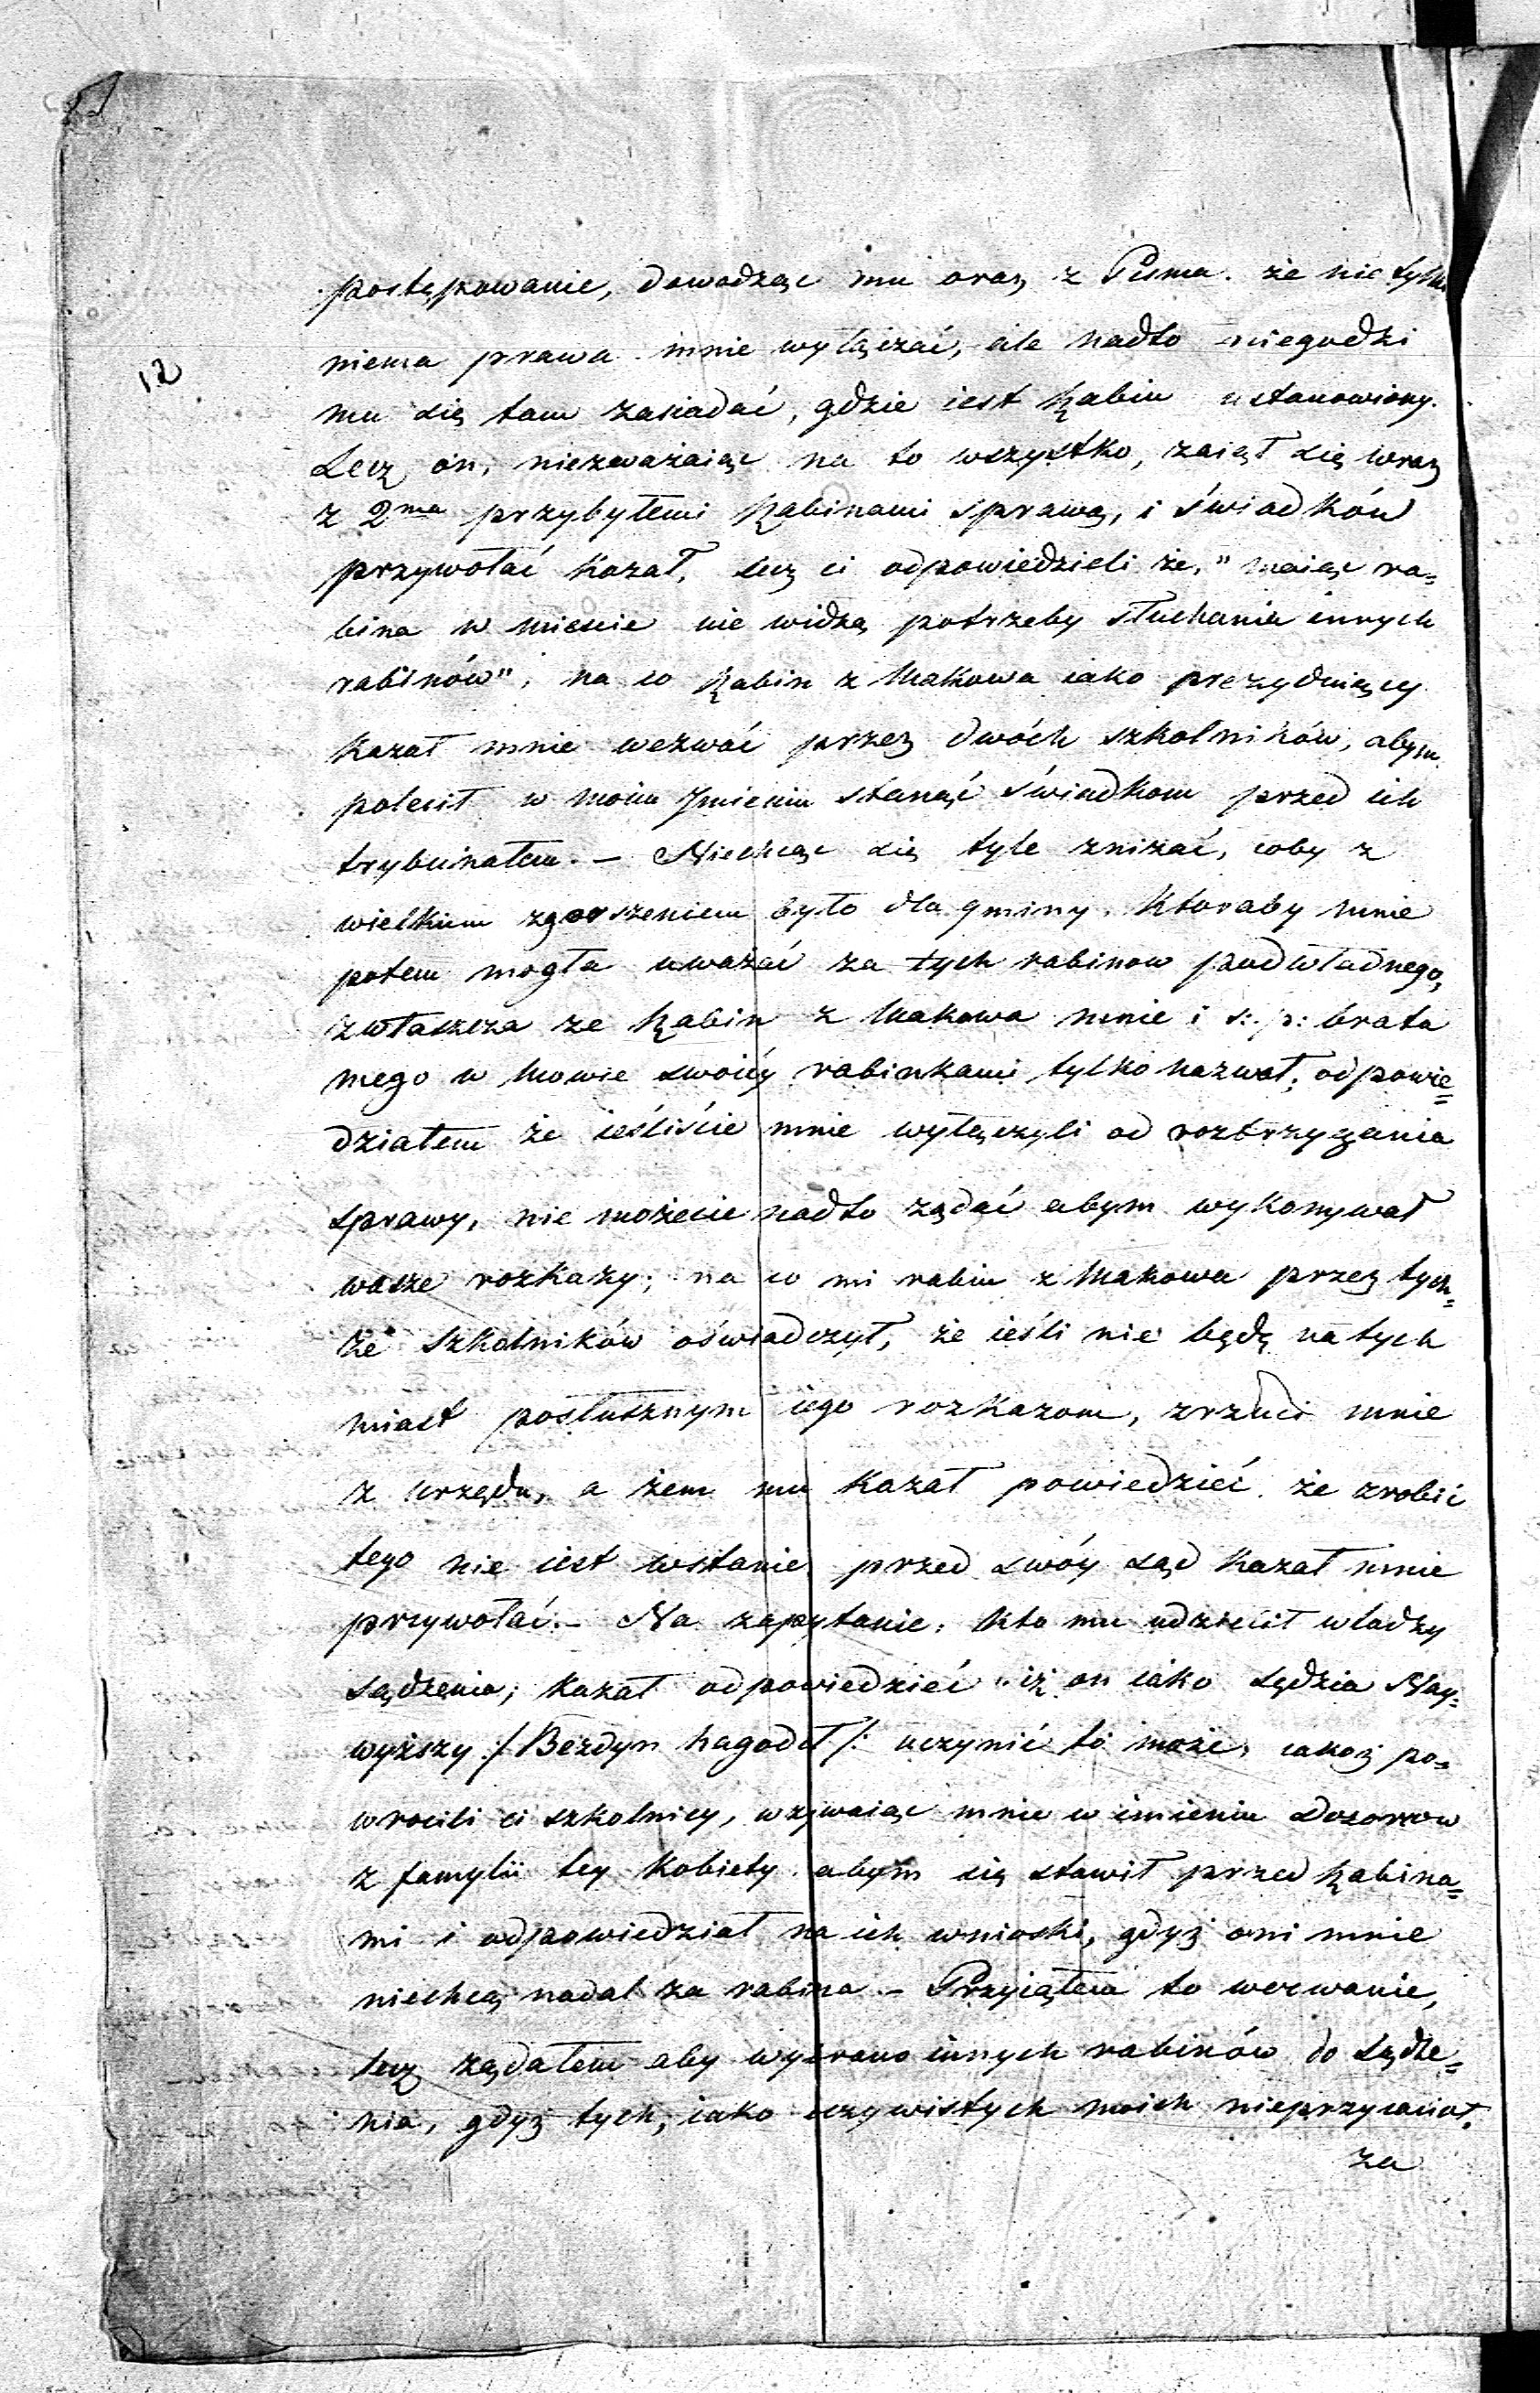 postępowanie, dowodząc mu oraz z Pisma. że nie tylko
12
niema prawa mnie wyłączać, ale nadto niegodzi
mu się tam zasiadać, gdzie iest Rabin ustanowiony.
Lecz on, niezważaiąc na to wszystko, zaiął się wraz
z 2ma przybyłemi Rabinami sprawą, i świadków
przywołać kazał, lecz ci odpowiedzieli że, "maiąc ra=
bina w mieście nie widzą potrzeby słuchania innych
rabinów", na co Rabin z Makowa iako prezyduiący
kazał mnie wezwać przez dwóch szkolników, abym
polecił w moim Jmieniu stanąć świadkom przed ich
trybunałem. – Niechcąc się tyle zniżać, coby z
wielkiem zgorszeniem było dla gminy, któraby mnie
potem mogła uważać za tych rabinow podwładnego,
zwłaszcza ze Rabin z Makowa mnie i ś: p: brata
mego w mowie swoiéy rabinkami tylko nazwał; odpowie=
działem że ieśliście mnie wyłączyli od roztrzygania
sprawy, nie możecie nadto żądać abym wykonywał
wasze rozkazy; na co mi rabin z Makowa przez tych=
że szkolników oświadczył, że ieśli nie będę natych
miast posłusznym iego rozkazom, zrzuci mnie
z urzędu, a żem mu kazał powiedzieć że zrobić
tego nie iest wstanie przed swóy sąd kazał mnie
przywołać. – Na zapytanie: kto mu udzielił władzy
sądzenia; kazał odpowiedzieć "iż on iako Sędzia Nay=
wyższy :/ Bezdyn hagodŀ /: uczynić to może, iakoż po=
wrócili ci szkolnicy, wzywaiąc mnie w imieniu dozorcow
z familii tey kobiety abym się stawił przed Rabina=
mi i odpowiedział na ich wnioski, gdyż oni mnie
niechcą nadal za rabina – Przyiąłem to wezwanie,
lecz żądałem aby wybrano innych rabinów do sądze=
nia, gdyż tych, iako oczywistych moich nieprzyiaciół,
za